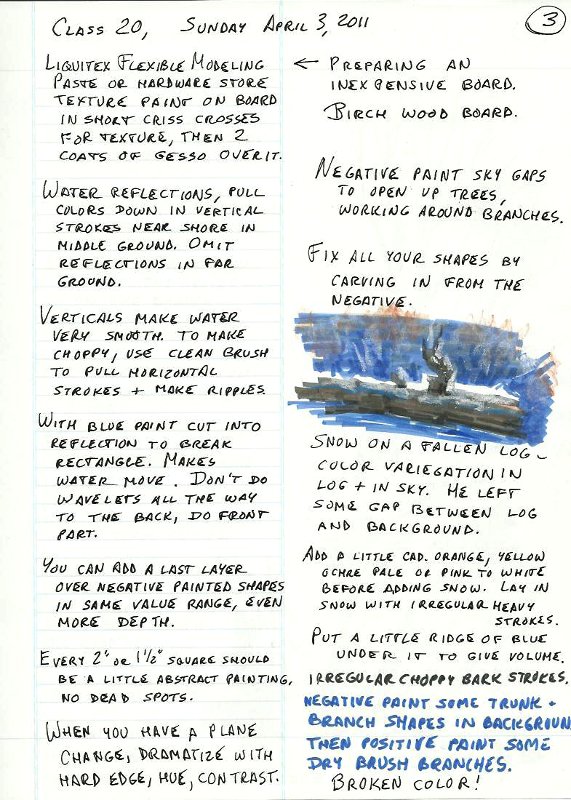 Class 20, Sunday April 3, 2011
3
Liquitex Flexible Modeling
Paste or hardware store
texture paint on board
in short criss crosses
for texture, then 2
coats of gesso over it.
Water reflections, pull
colors down in vertical
strokes near shore in
middle ground. Omit
reflections in far
ground.
Verticals make water
very smooth. To make
choppy, use clean brush
to pull horizontal
strokes + make ripples.
With blue paint cut into
reflection to break
rectangle. Makes
water move. Don't do
wavelets all the way
to the back, do front
part.
You can add a last layer
over negative painted shapes
in same value range, even
more depth.
Every 2" or 1½" square should
be a little abstract painting,
no dead spots.
When you have a plane
change, dramatize with
hard edge, hue, contrast.
← Preparing an
inexpensive board.
Birch wood board.
Negative paint sky gaps
to open up trees,
working around branches.
Fix all your shapes by
carving in from the
negative.
Snow on a fallen log -
color variegation in
log + in sky. He left
some gap between log
and background.
Add a little cad. orange, yellow
ochre pale or pink to white
before adding snow. Lay in
snow with irregular heavy
strokes.
Put a little ridge of blue
under it to give volume.
Irregular choppy bark strokes.
Negative paint some trunk +
branch shapes in backgroun
then positive paint some
dry brush branches.
Broken color!